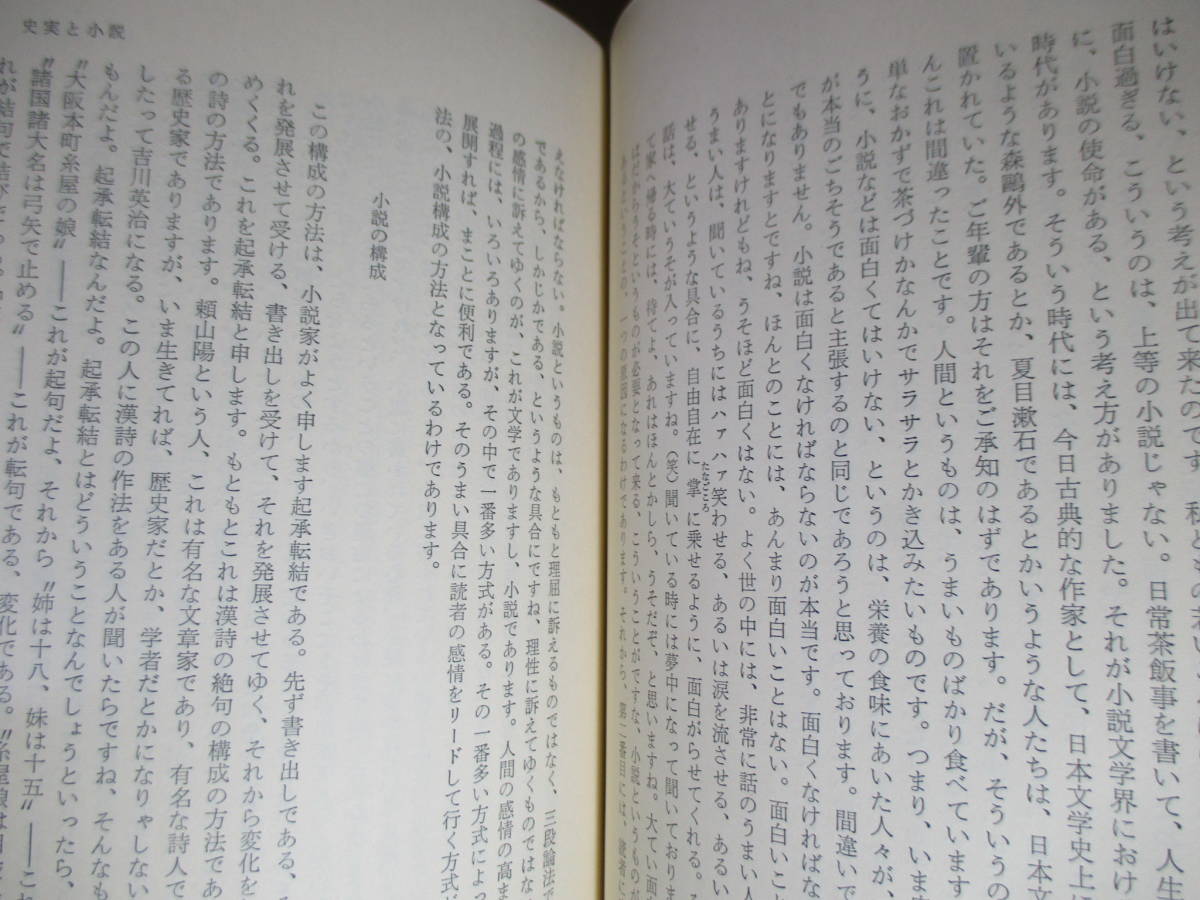 はいけない、という考えが出て来たのです。
面白過ぎる、こういうのは、上等の小説じゃない。日常茶飯事を書いて、人生
に、小説の使命がある、という考え方がありました。それが小説文学界におけ
時代があります。そういう時代には、今日古典的な作家として、日本文学史上に
いるような森鷗外であるとか、夏目漱石であるとかいうような人たちは、日本文
置かれていた。ご年輩の方はそれをご承知のはずであります。だが、そういうの
んこれは間違ったことです。人間というものは、うまいものばかり食べています
単なおかずで茶づけかなんかでサラサラとかき込みたいものです。つまり、いま
うに、小説などは面白くてはいけない、というのは、栄養の食味にあいた人々が、
が本当のごちそうであると主張するのと同じであろうと思っております。間違いで
でもありません。小説は面白くなければならないのが本当です。面白くなければな
とになりますとですね、ほんとのことには、あんまり面白いことはない。面白いこ
ありますけれどもね、うそほど面白くはない。よく世の中には、非常に話のうまい人
うまい人は、聞いているうちにはハァハァ笑わせる、あるいは涙を流させる、あるい
せる、というような具合に、自由自在に掌に乗せるように、面白がらせてくれる。
たなごころ
話は、大ていうそが入っていますね。(笑)聞いている時には夢中になって聞いておりま
て家へ帰る時には、待てよ、あれはほんとかしら、うそだぞ、と思いますね。大てい面
ばだからうそというものが必要となって来る、こういうことがですな、小説というものが
あるということの、一つの原因になるわけであります。それから、第二番目には、読者に
えなければならない。小説というものは、もともと理屈に訴えるものではなく、三段論法で
であるから、しかじかである、というような具合にですね、理性に訴えてゆくものではな
の感情に訴えてゆくのが、これが文学でありますし、小説であります。人間の感情の高ま
過程には、いろいろありますが、その中で一番多い方式がある。その一番多い方式によっ
展開すれば、まことに便利である。そのうまい具合に読者の感情をリードして行く方式が
法の、小説構成の方法となっているわけであります。
小説の構成
この構成の方法は、小説家がよく申します起承転結である。先ず書き出しである、
れを発展させて受ける、書き出しを受けて、それを発展させてゆく、それから変化を
めくくる。これを起承転結と申します。もともとこれは漢詩の絶句の構成の方法であ
の詩の方法であります。頼山陽という人、これは有名な文章家であり、有名な詩人で
る歴史家でありますが、いま生きてれば、歴史家だとか、学者だとかになりゃしない
したって吉川英治になる。この人に漢詩の作法をある人が聞いたらですね、そんなも
もんだよ。起承転結なんだよ。起承転結とはどういうことなんでしょうといったら、
〝大阪本町糸屋の娘〟――これが起句だよ、それから〝姉は十八、妹は十五〟――これ
〝諸国諸大名は弓矢で止める〟――これが転句である、変化である。〝糸屋娘は
れが結句で結び
史実と小説